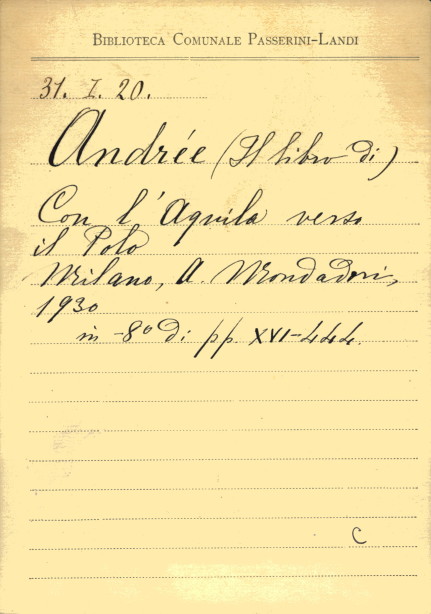 BIBLIOTECA COMUNALE PASSERINI-LANDI
31. I. 20.
Andrée (Il libro di)
Con l'Aquila verso
il Polo
Milano, A. Mondadori,
1930
in -8° di pp. XVI-444.
C